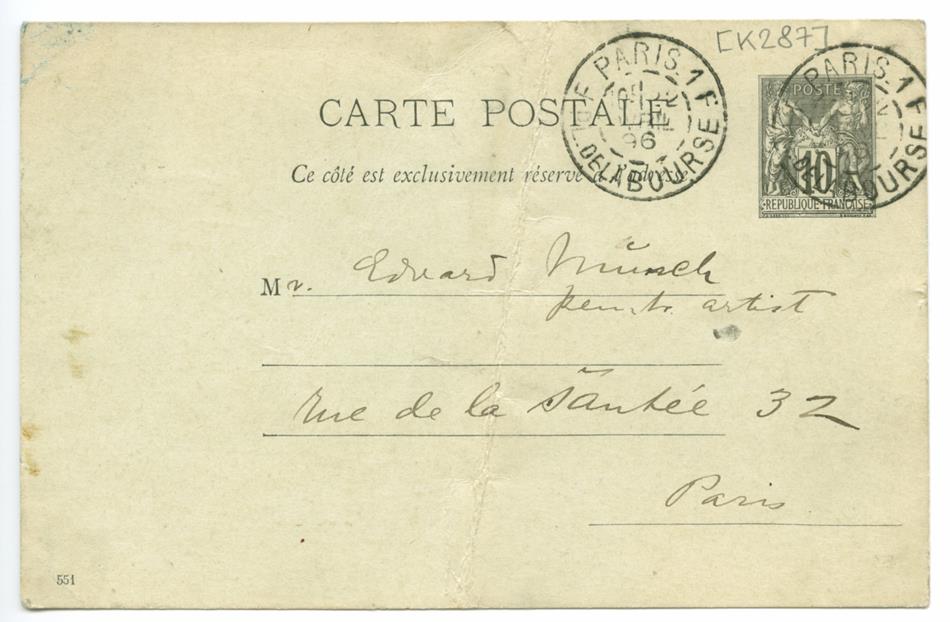 [K287]
PARIS.1
PL. DE LA BOURSE
96
PARIS.1
DE LA BOURSE
POSTE
10
REPUBLIQUE FRANÇAISE
CARTE POSTALE
Ce côté est exclusivement réservé à l'adresse.
Mr. Edvard Münch
artist
rue de la Santée 32
Paris
551